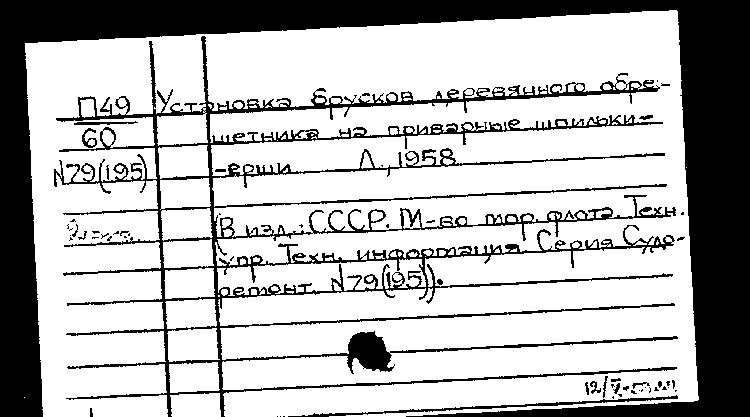 П49
60
N79(195)
Установка брусков деревянного обре-
шетника на приварные шпильки-
-ерши Л., 1958
(В изд.: СССР. М-во мор. флота. Техн.
упр. Техн. информация. Серия Судо-
ремонт. N79(195)).